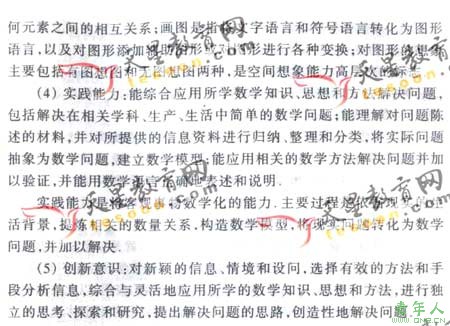 何元素之间的相互关系；画图是指 文字语言和符号语言转化为图形
语言，以及对图形添加辅助图形或对图形进行各种变换；对图形的想象
主要包括有图想图和无图想图两种，是空间想象能力高层次的标志
(4) 实践能力：能综合应用所学数学知识、思想和方法解决问题，
包括解决在相关学科、生产、生活中简单的数学问题；能理解对问题陈
述的材料，并对所提供的信息资料进行归纳、整理和分类，将实际问题
抽象为数学问题，建立数学模型；能应用相关的数学方法解决问题并加
以验证，并能用数学语言 确地表述和说明．
实践能力是将客观事物数学化的能力．主要过程是依据现实的 
活背景，提炼相关的数量关系，构造数学模型，将现实问题转化为数学
问题，并加以解决．
(5) 创新意识：对新颖的信息、情境和设问，选择有效的方法和手
段分析信息，综合与灵活地应用所学的数学知识、思想和方法，进行独
立的思考、探索和研究，提出解决问题的思路，创造性地解决问题
天星教育网
天星教育网
天星教育网
天星教育网
青年人